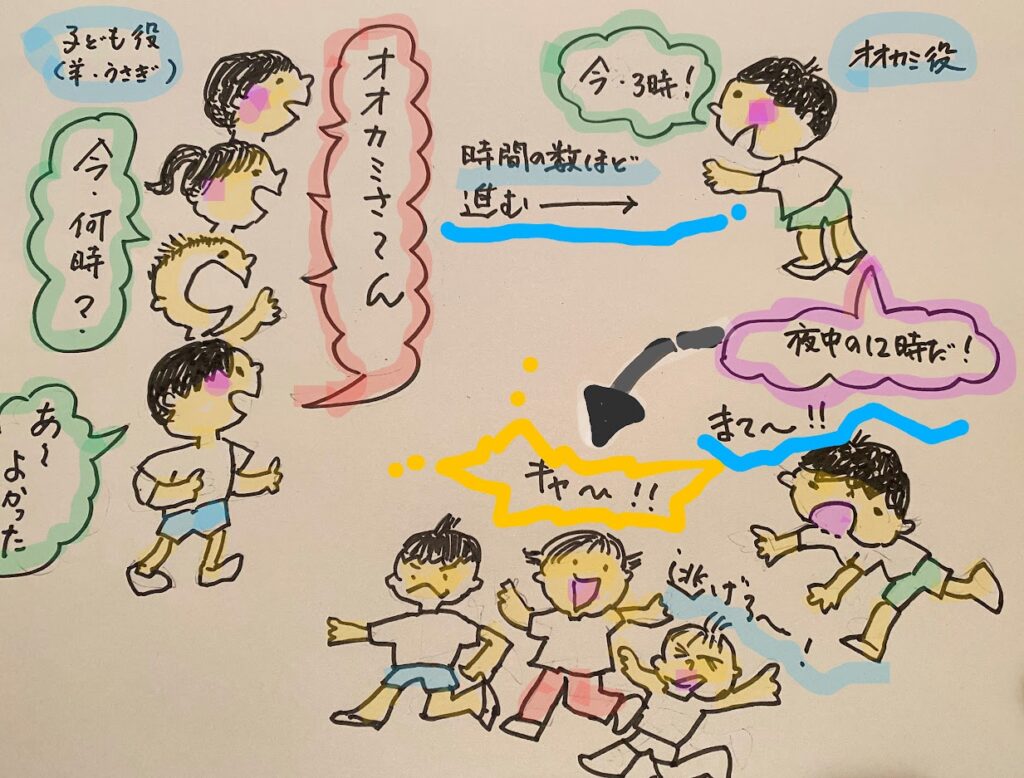 子ども役
(羊・うさぎ)
オオカミさーん
今・何時?
あ〜
よかった
今・3時!
オオカミ役
時間の数ほど
進む→
夜中の12時だ!
まて〜!!
キャ〜!!
逃げろ〜!